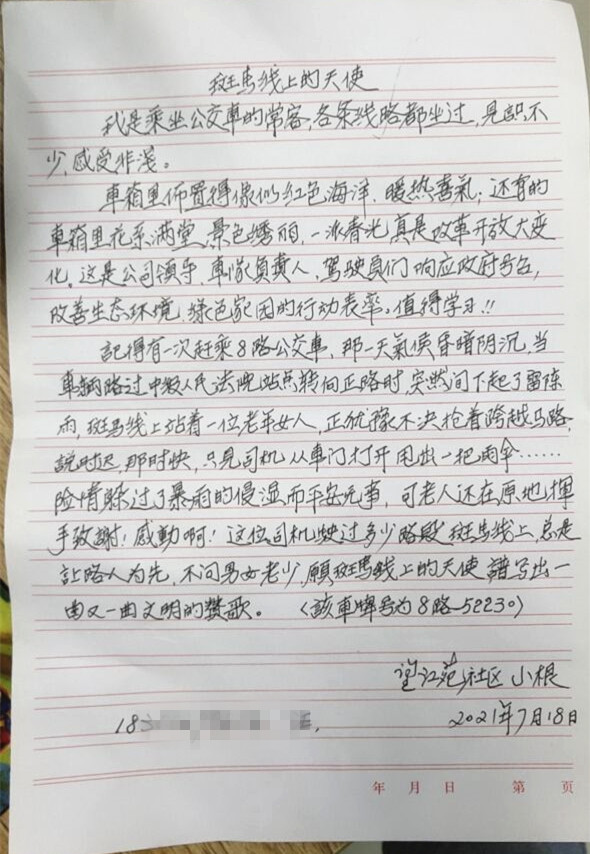 斑马线上的天使
我是乘坐公交車的常客,各条线路都坐过,見識不
少,感受非淺。
車箱里佈置得像似红色海洋,暖热喜氣;还有的
車箱里花朵满堂,景色绣丽,一派春光,真是改革开放大变
化。这是公司领导,車隊負責人,驾驶員们响应政府号召,
改善生态环境,绿色家园的行动表率。值得学习!!
記得有一次赶乘8路公交車,那一天氣侯昏暗阴沉,当
車辆路过中级人民法院站点转向正路时,突然间下起了雷陣
雨,斑马线上站着一位老年女人,正犹豫不决抢着跨越马路,
說时迟,那时快,只見司机从車门打开甩出一把雨伞……
险情躲过了暴雨的侵湿而平安无事,可老人还在原地揮
手致謝!感動啊!这位司机驶过多少路段,斑馬线上,总是
让路人为先,不问男女老少,願斑馬线上的天使,譜写出一
曲又一曲文明的赞歌。(該車牌号为8路-52230)
望江苑社区 小根
2021年7月18日
18
年 月 日 第 页